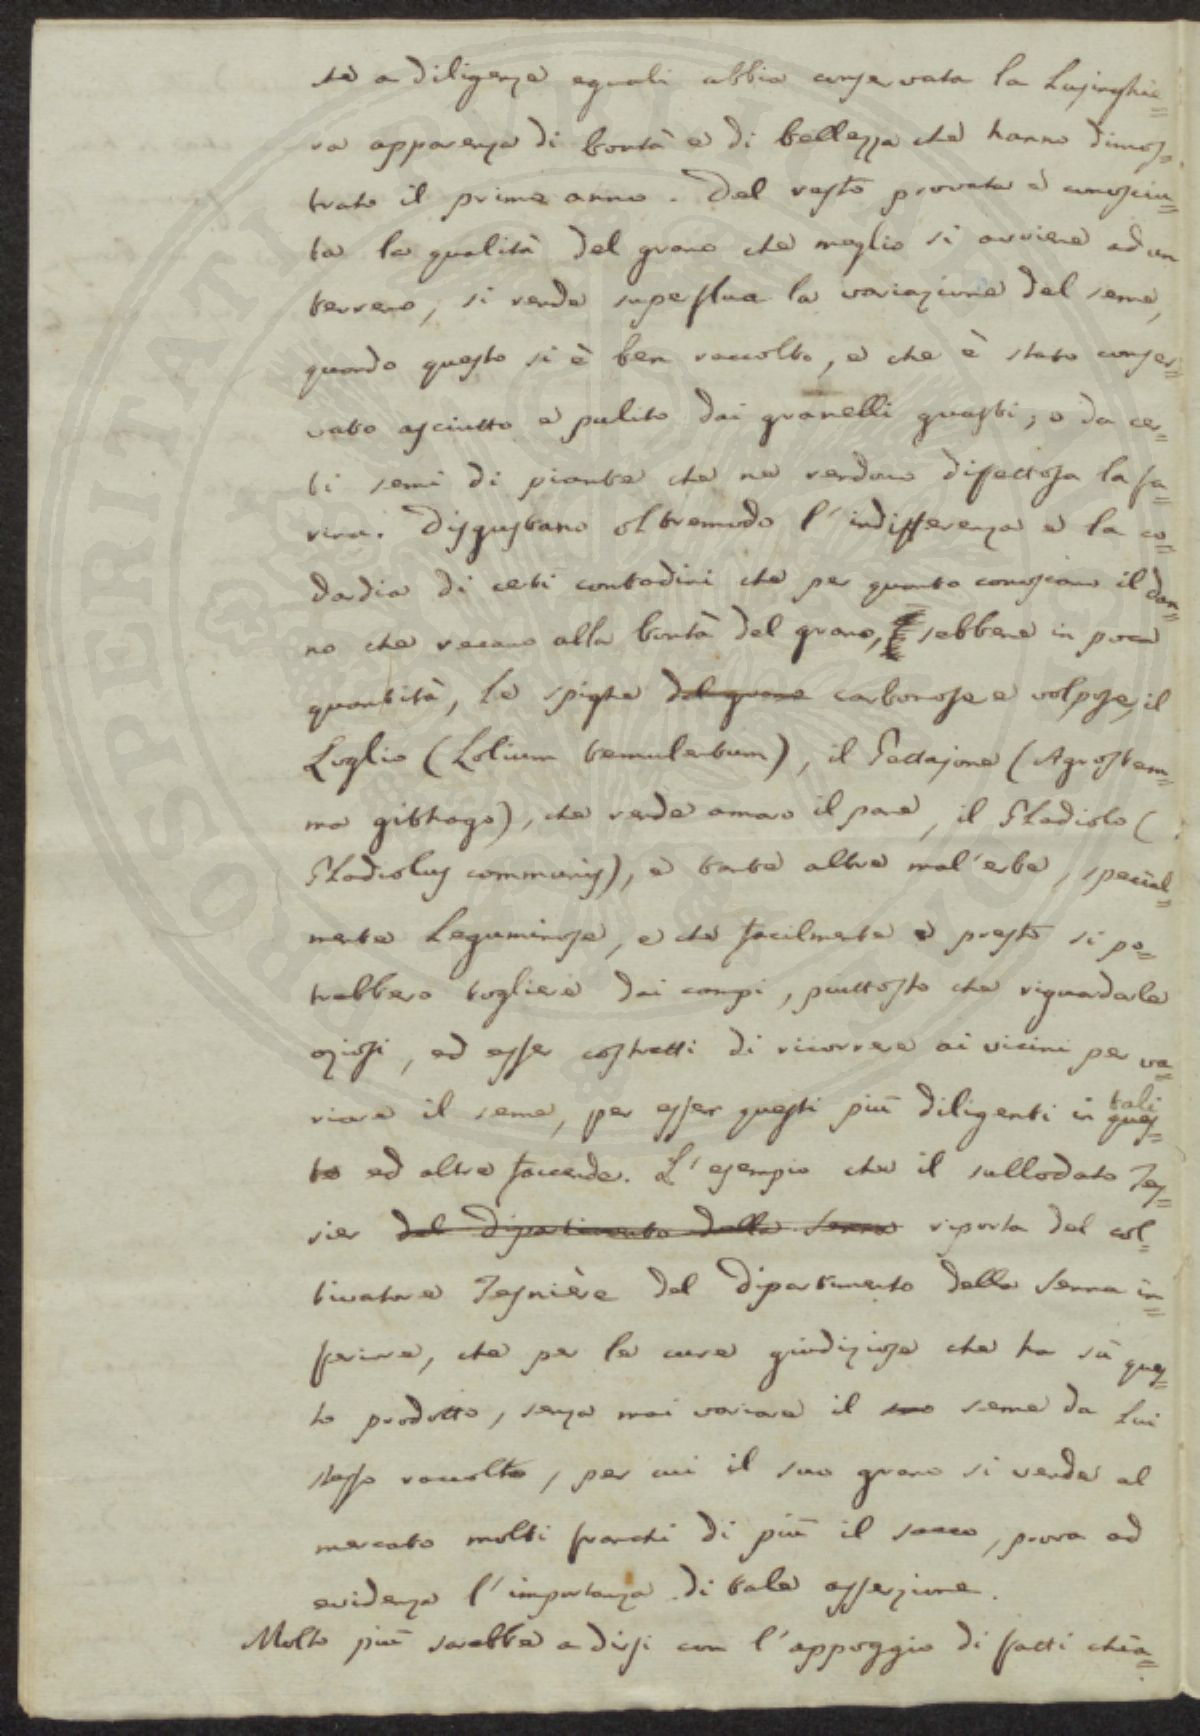 te a diligenze eguali abbia conservata la Lusinghie=
ra apparenza di bontà e di bellezza che hanno dimos=
trato il primo anno. Del resto provata e conosciu=
ta la qualità del grano che meglio si avviene ad un
terreno, si rende superflua la variazione del seme,
quando questo si è ben raccolto, e che è stato conser=
vato asciutto e pulito dai granelli guasti, o da cer=
ti semi di piante che ne rendono difettosa la fa=
rina. Disgustano oltremodo l'indifferenza e la co=
dardia di certi contadini che per quanto conoscano il dan=
no che recano alla bontà del grano, sebbene in poca
quantità, le spighe del grano carbonose e volpose, il
Loglio (Lolium temulentum), il Gettajone (Agrostem=
ma githago), che rende amaro il pane, il Gladiolo (
Gladiolus communis), e tante altre mal'erbe, special=
mente Leguminose, e che facilmente e presto si po=
trebbero togliere dai campi, piuttosto che riguardarle
oziosi, ed esser costretti di ricorrere ai vicini per va=
riare il seme, per esser questi più diligenti in tali
ques=
te ed altre faccende. L'esempio che il sullodato Tes=
sier del dipartimento della Senna riporta del col=
tivatore Tesnière del Dipartimento della Senna in=
feriore, che per le cure giudiziose che ha sù ques=
to prodotto, senza mai variare il suo seme da Lui
stesso raccolto, per cui il suo grano si vende al
mercato molti franchi di più il sacco, prova ad
evidenza l'importanza di tale asserzione.
Molto più sarebbe a dirsi con l'appoggio di fatti chia=